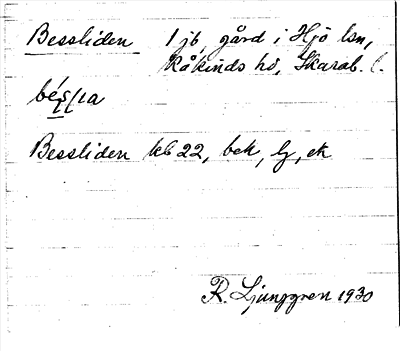 Bessliden 1 jb, gård i Hjo lsn,
Kåkinds hd, Skarab. l.
Bessliden kb 22, bek, lj, ek
R. Ljunggren 1930